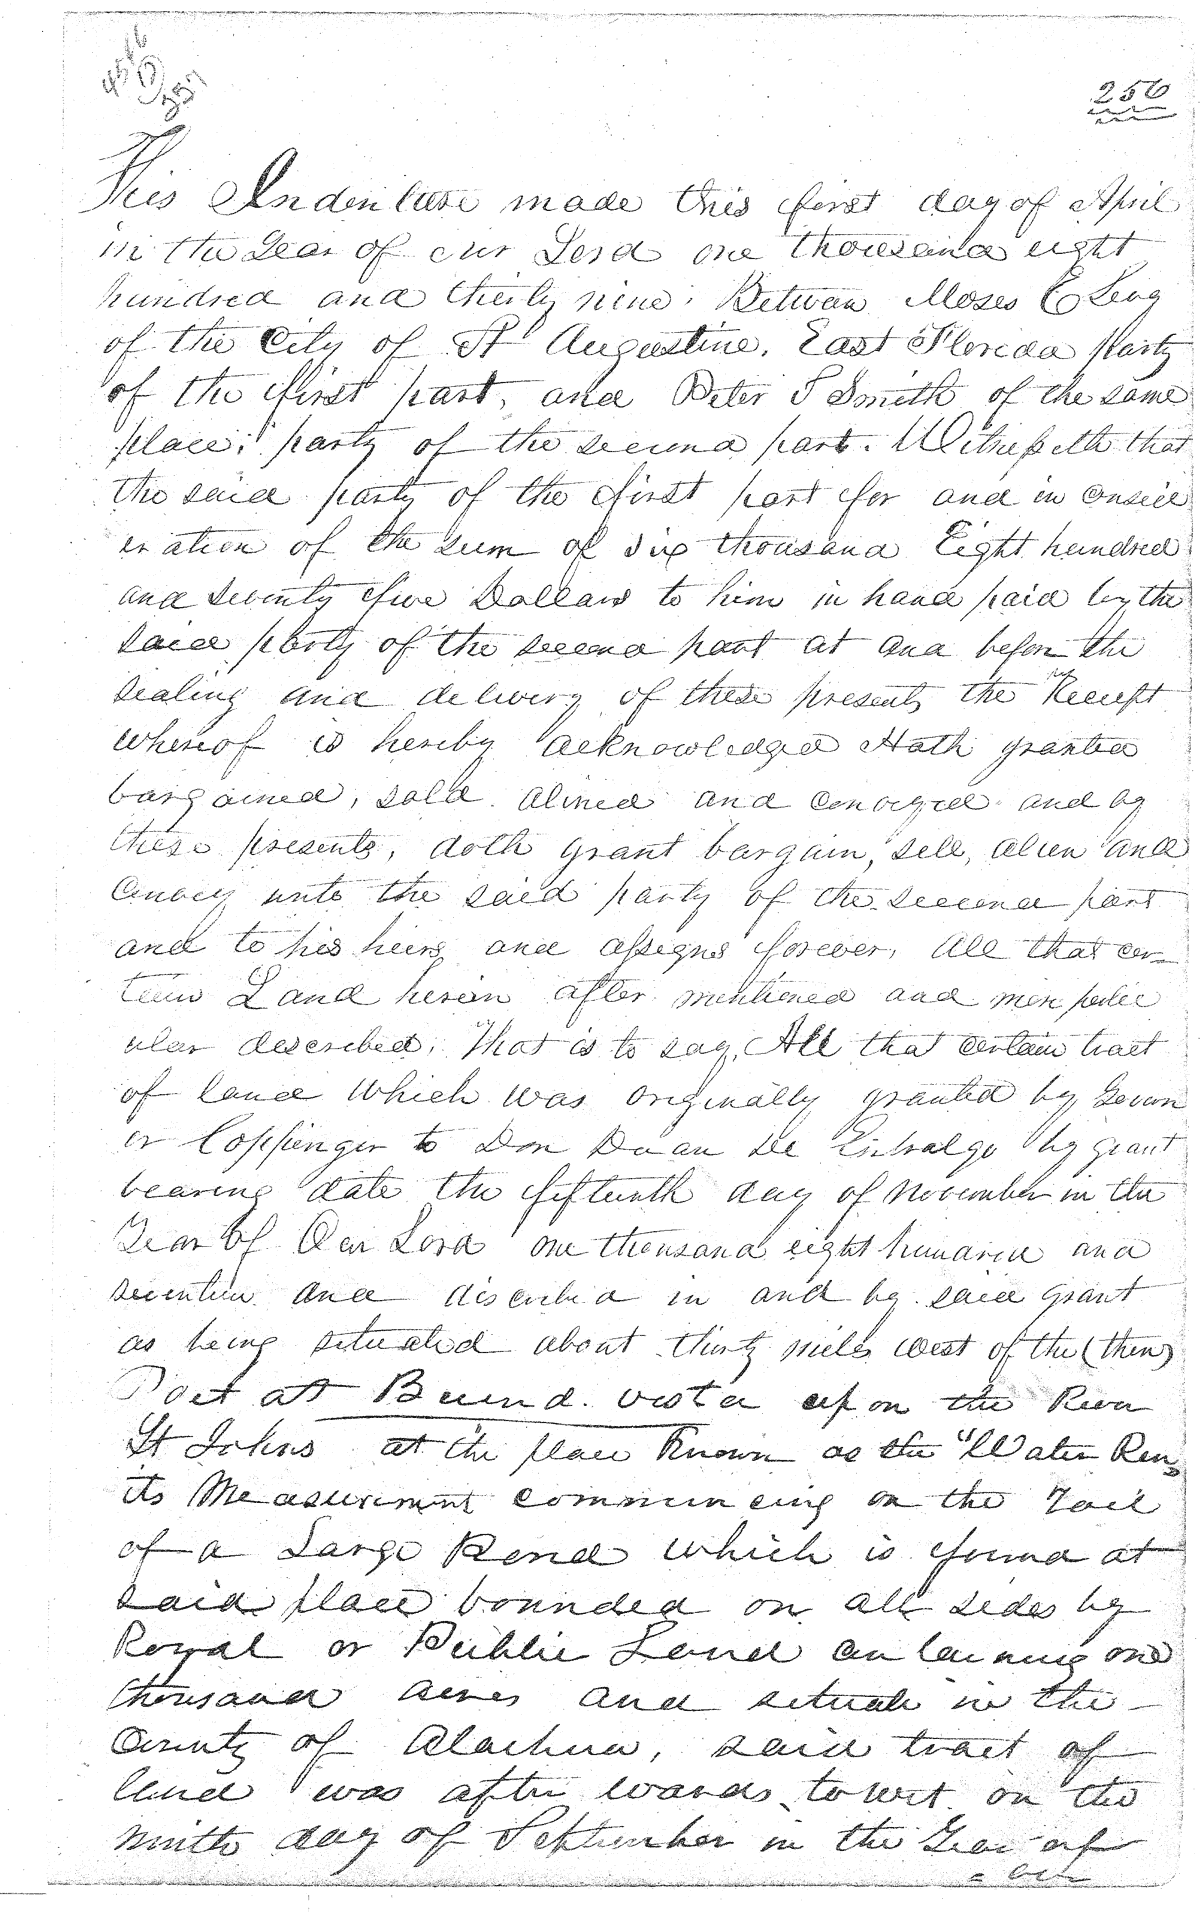 256
This Indenture made this first day of April
in the Year of our Lord one thousand eight
hundred and thirty nine. Between Moses E Levy
of the City of St Augustine, East Florida party
of the first part, and Peter S Smith of the same
place; party of the second part. Witnesseth that
the said party of the first part for and in consid
eration of the sum of six thousand Eight hundred
and seventy five Dollars to him in hand paid by the
said party of the second part at and before the
sealing and delivery of these presents the Receipt
whereof is hereby acknowledged Hath granted
bargained, sold. aliened and conveyed and by
these presents, doth grant bargain, sell, alien and
Convey unto the said party of the second part
and to his heirs and assigns forever, All that cer-
tain Land herein after mentioned and more partic
ular described. That is to say, All that certain tract
of land which was originally granted by Govern
or Coppinger to Don Juan De Entralgo by grant
bearing date the fifteenth day of November in the
Year of Our Lord one thousand eight hundred and
seventeen and described in and by said grant
as being situated about thirty miles west of the (then)
Post at Buena vista upon the River
St Johns at the place Known as the "Water Run,
its Measurement commencing on the Tail
of a Large Pond which is found at
said place bounded on all sides by
Royal or Public Land containing one
thousand acres and situate in the
County of Alachua, said tract of
land was after wards to wit on the
ninth day of September in the Year of
= our